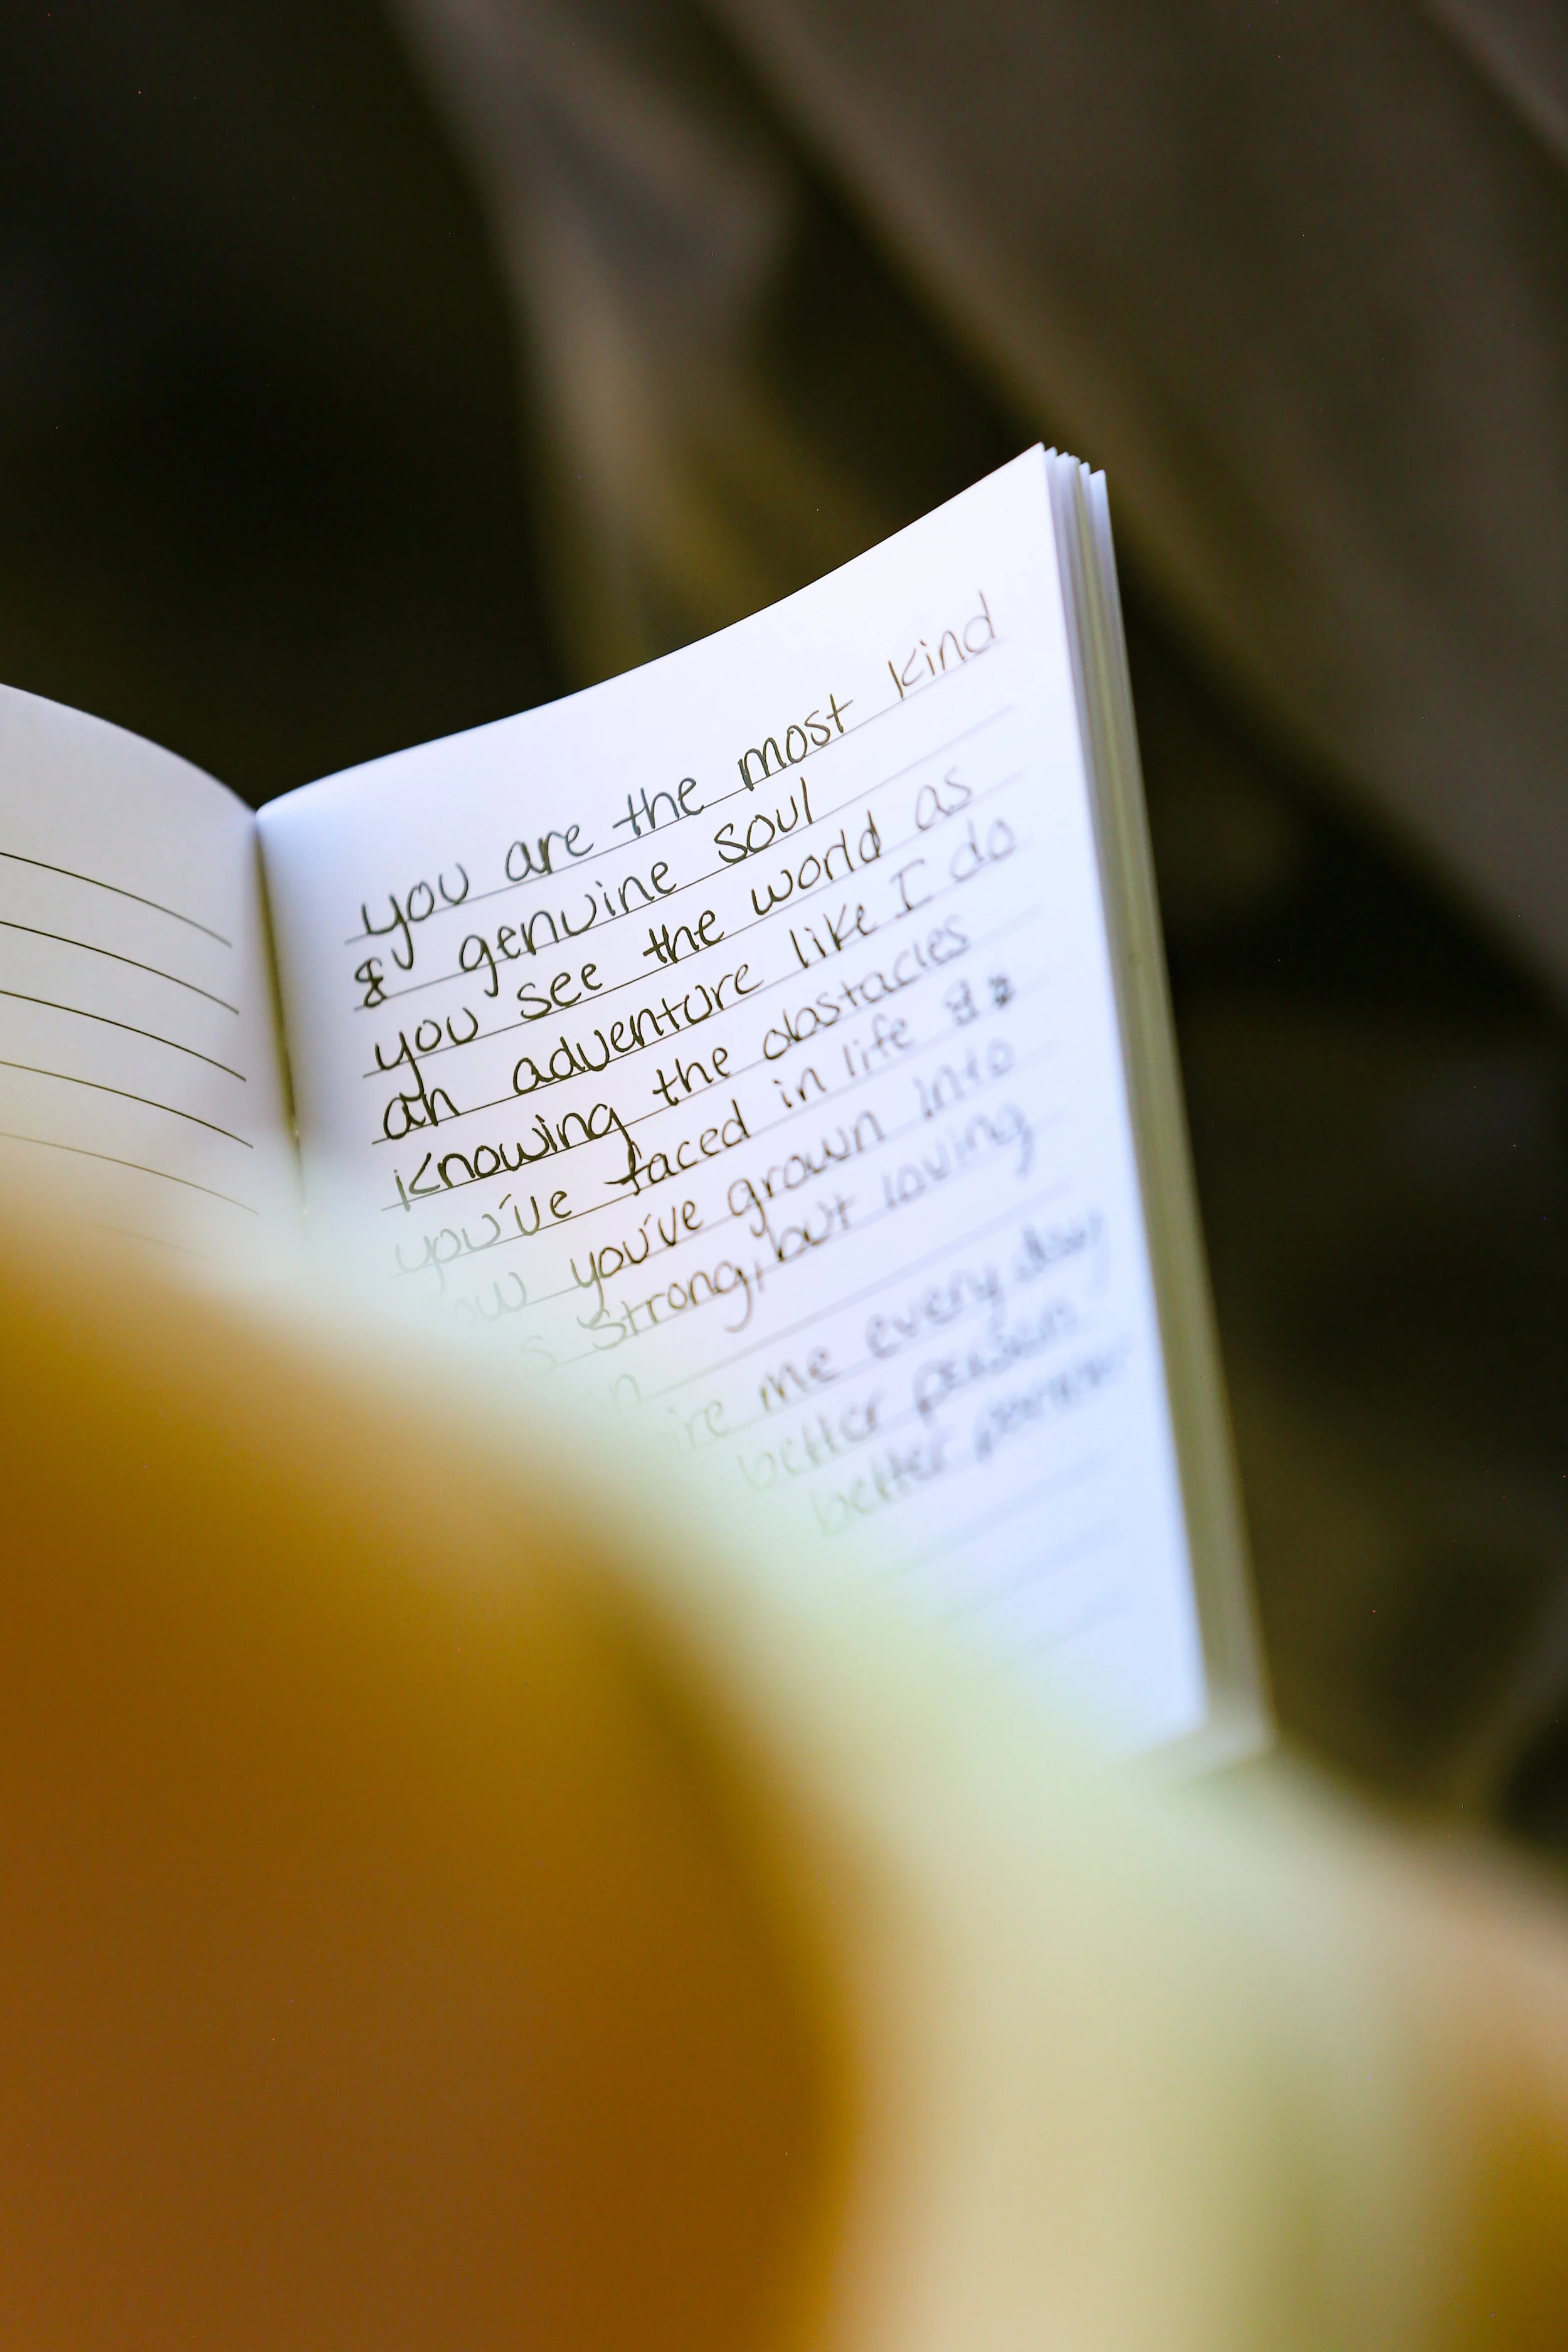 you are the most kind
& genuine soul
you see the world as
an adventure like I do
knowing the obstacles
you've faced in life &
you've grown into
strong, but loving
me every day
better person
better